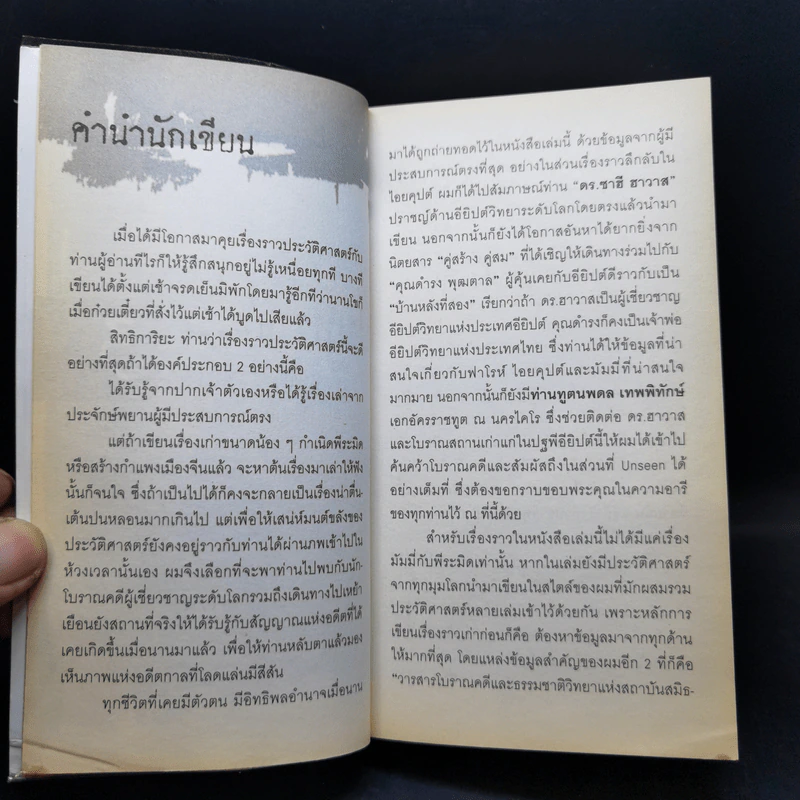 คำนำนักเขียน
เมื่อได้มีโอกาสมาคุยเรื่องราวประวัติศาสตร์กับ
ท่านผู้อ่านทีไรก็ให้รู้สึกสนุกอยู่ไม่รู้เหนื่อยทุกที บางที
เขียนได้ตั้งแต่เช้าจรดเย็นมิพักโดยมารู้อีกทีว่านานโขก็
เมื่อก๋วยเตี๋ยวที่สั่งไว้แต่เช้าได้บูดไปเสียแล้ว
สิทธิการิยะ ท่านว่าเรื่องราวประวัติศาสตร์นี้จะดี
อย่างที่สุดถ้าได้องค์ประกอบ 2 อย่างนี้คือ
ได้รับรู้จากปากเจ้าตัวเองหรือได้รู้เรื่องเล่าจาก
ประจักษ์พยานผู้มีประสบการณ์ตรง
แต่ถ้าเขียนเรื่องเก่าขนาดน้อง ๆ กำเนิดพีระมิด
หรือสร้างกำแพงเมืองจีนแล้ว จะหาต้นเรื่องมาเล่าให้ฟัง
นั้นก็จนใจ ซึ่งถ้าเป็นไปได้ก็คงจะกลายเป็นเรื่องน่าตื่น-
เต้นปนหลอนมากเกินไป แต่เพื่อให้เสน่ห์มนต์ขลังของ
ประวัติศาสตร์ยังคงอยู่ราวกับท่านได้ผ่านภพเข้าไปใน
ห้วงเวลานั้นเอง ผมจึงเลือกที่จะพาท่านไปพบกับนัก-
โบราณคดีผู้เชี่ยวชาญระดับโลกรวมถึงเดินทางไปเหย้า
เยือนยังสถานที่จริงให้ได้รับรู้กับสัญญาณแห่งอดีตที่ได้
เคยเกิดขึ้นเมื่อนานมาแล้ว เพื่อให้ท่านหลับตาแล้วมอง
เห็นภาพแห่งอดีตกาลที่โลดแล่นมีสีสัน
ทุกชีวิตที่เคยมีตัวตน มีอิทธิพลอำนาจเมื่อนาน
มาได้ถูกถ่ายทอดไว้ในหนังสือเล่มนี้ ด้วยข้อมูลจากผู้มี
ประสบการณ์ตรงที่สุด อย่างในส่วนเรื่องราวลึกลับใน
ไอยคุปต์ ผมก็ได้ไปสัมภาษณ์ท่าน “ดร.ซาฮี ฮาวาส”
ปราชญ์ด้านอียิปต์วิทยาระดับโลกโดยตรงแล้วนำมา
เขียน นอกจากนั้นก็ยังได้โอกาสอันหาได้ยากยิ่งจาก
นิตยสาร “คู่สร้าง คู่สม” ที่ได้เชิญให้เดินทางร่วมไปกับ
“คุณดำรง พุฒตาล” ผู้คุ้นเคยกับอียิปต์ดีราวกับเป็น
“บ้านหลังที่สอง” เรียกว่าถ้า ดร.ฮาวาสเป็นผู้เชี่ยวชาญ
อียิปต์วิทยาแห่งประเทศอียิปต์ คุณดำรงก็คงเป็นเจ้าพ่อ
อียิปต์วิทยาแห่งประเทศไทย ซึ่งท่านได้ให้ข้อมูลที่น่า
สนใจเกี่ยวกับฟาโรห์ ไอยคุปต์และมัมมี่ที่น่าสนใจ
มากมาย นอกจากนั้นก็ยังมีท่านทูตนพดล เทพพิทักษ์
เอกอัครราชทูต ณ นครไคโร ซึ่งช่วยติดต่อ ดร.ฮาวาส
และโบราณสถานเก่าแก่ในปฐพีอียิปต์นี้ให้ผมได้เข้าไป
ค้นคว้าโบราณคดีและสัมผัสถึงในส่วนที่ Unseen ได้
อย่างเต็มที่ ซึ่งต้องขอกราบขอบพระคุณในความอารี
ของทุกท่านไว้ ณ ที่นี้ด้วย
สำหรับเรื่องราวในหนังสือเล่มนี้ไม่ได้มีแค่เรื่อง
มัมมี่กับพีระมิดเท่านั้น หากในเล่มยังมีประวัติศาสตร์
จากทุกมุมโลกนำมาเขียนในสไตล์ของผมที่มักผสมรวม
ประวัติศาสตร์หลายเล่มเข้าไว้ด้วยกัน เพราะหลักการ
เขียนเรื่องราวเก่าก่อนก็คือ ต้องหาข้อมูลมาจากทุกด้าน
ให้มากที่สุด โดยแหล่งข้อมูลสำคัญของผมอีก 2 ที่ก็คือ
“วารสารโบราณคดีและธรรมชาติวิทยาแห่งสถาบันสมิธ-